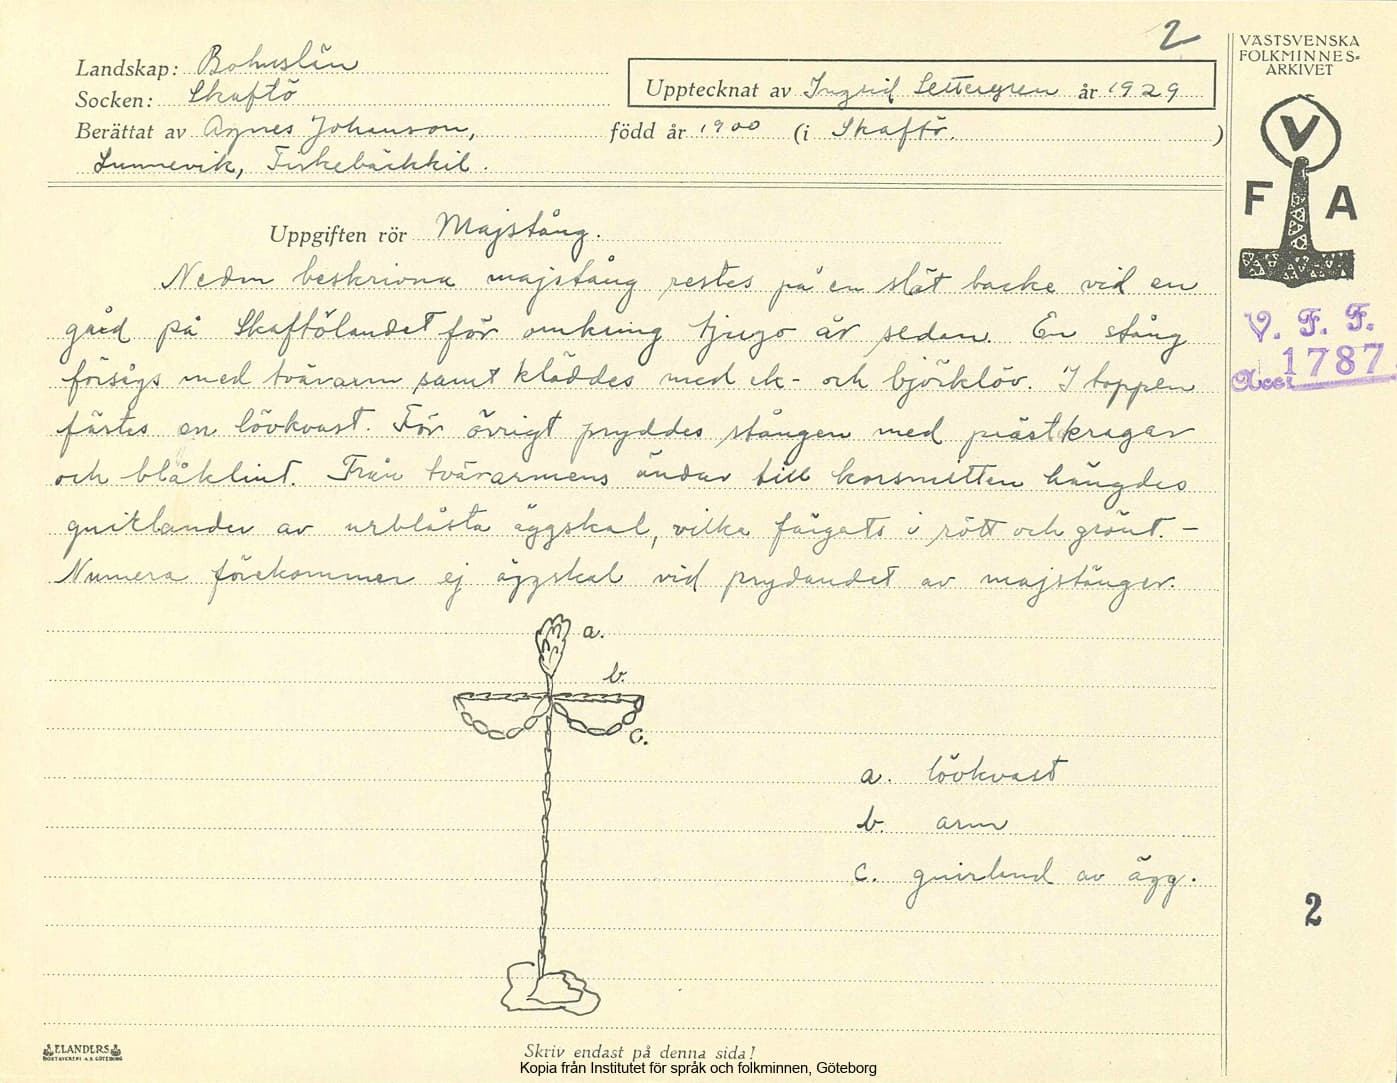 2
Landskap: Bohuslän
Socken: Skaftö
Upptecknat av Ingrid Settergren år 1929
Berättat av Agnes Johanson, född år 1900 (i Skaftö. )
Lunnevik, Fiskebäckkil.
Uppgiften rör Majstång.
Nedan beskrivna majstång restes på en slät backe vid en
gård på Skaftölandet för omkring tjugo år sedan. En stång
försågs med tvärarm samt kläddes med ek- och björklöv. I toppen
fästes en lövkvast. För övrigt pryddes stången med prästkragar
och blåklint. Från tvärarmens ändar till korsmitten hängdes
guirlander av urblåsta äggskal, vilka färgats i rött och grönt. –
Numera förekommer ej äggskal vid prydandet av majstänger.
a.
b.
c.
a. lövkvast
b. arm
c. guirland av ägg.
VÄSTSVENSKA
FOLKMINNES-
ARKIVET
V
F A
V. F. F.
Acc. 1787
2
ELANDERS
BOKTRYCKERI A.B. GÖTEBORG
Skriv endast på denna sida!
Kopia från Institutet för språk och folkminnen, Göteborg